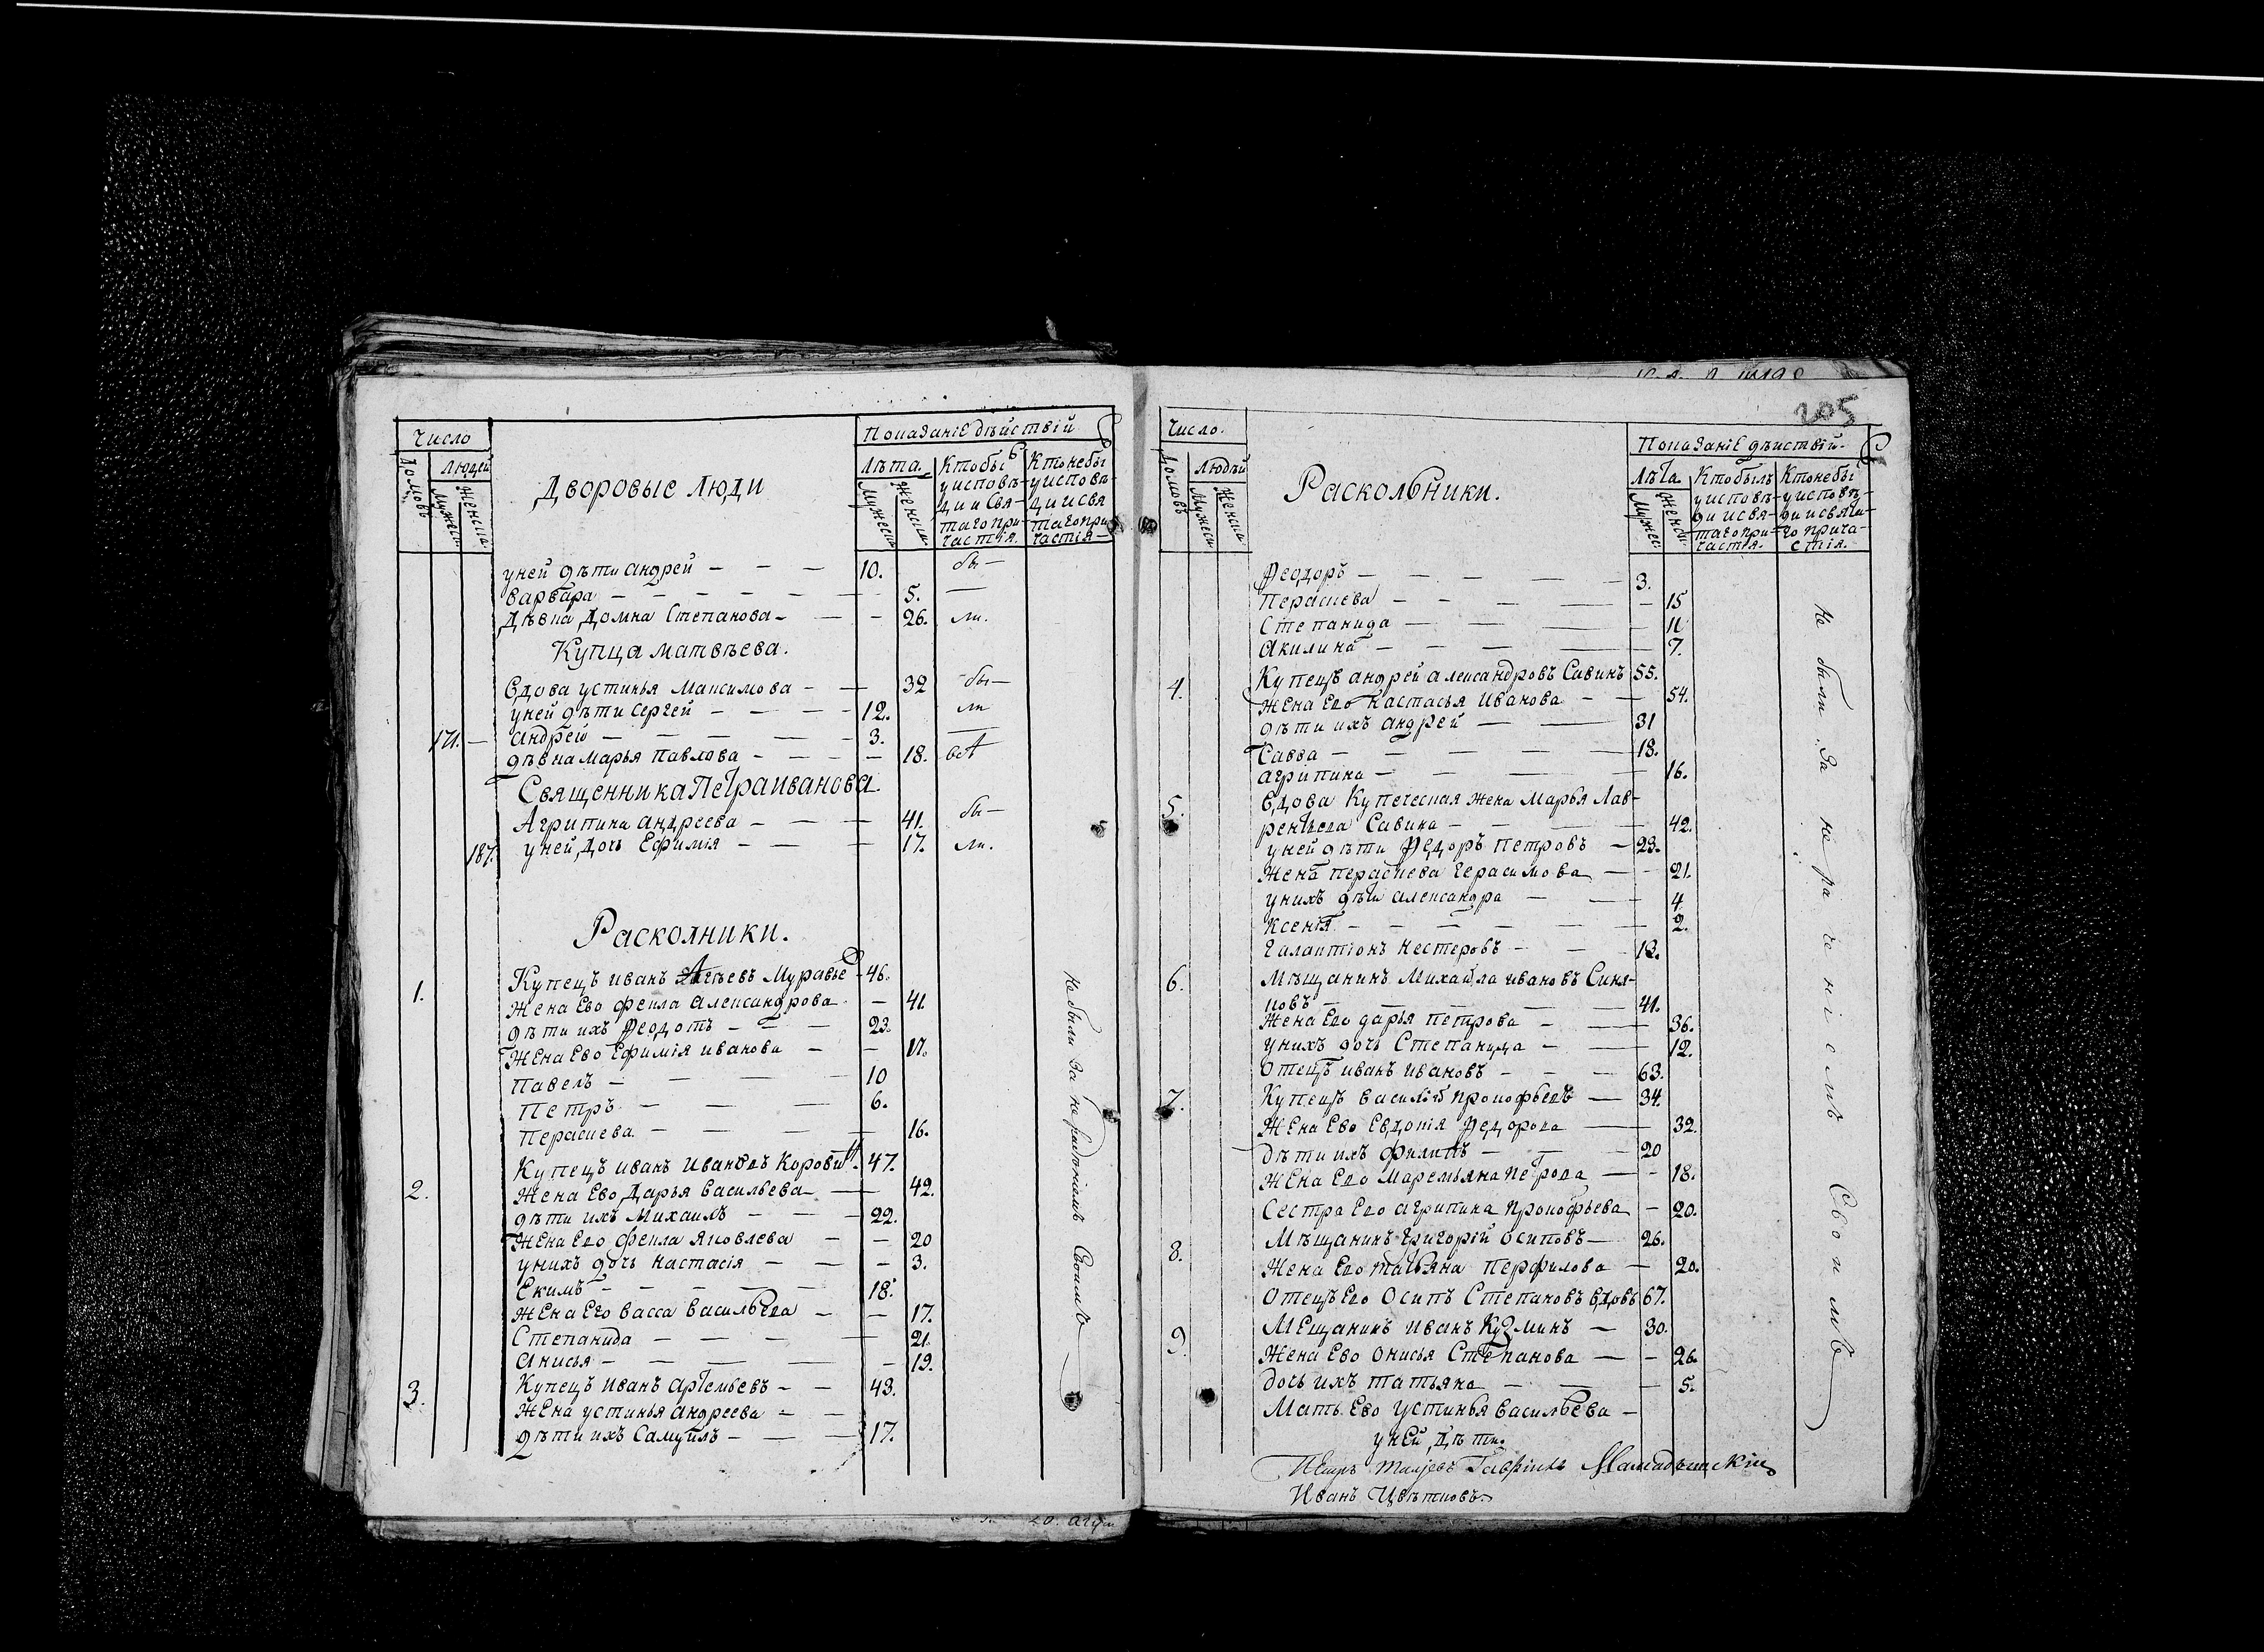 Число
Домовъ
Людей
Мужеск.
Женска.
Дворовые Люди
Показаніе дѣйствій
Лѣта.
Мужеска
Женска.
Кто бы
у исповѣ-
ди и Свя-
таго при-
частія.
Кто не бы
у испове-
ди и свя
таго при-
частія—
у ней дѣти андрей — 10. бы—
варвара — 5. —
Дѣвка Домна Степанова — 26. ли.
Купца матвѣева.
Вдова устинья Максимова — 32 бы—
у ней дѣти Сергей — 12. ли
171. — андрей — 3. —
дѣвка марья Павлова — 18.
Священника Петра иванова
Агрипина андреева — 41. бы—
187. у ней дочь Ефимія — 17. ли.
Расколники.
1. Купецъ иванъ Муравье 46.
Жена Ево фекла александрова — 41.
дѣти ихъ Феодотъ — 23.
Жена Ево Ефимія иванова — 17.
Павелъ — 10
Петръ — 6.
Параскева — 16.
2. Купецъ иванъ ивановъ Коровин. 47.
Жена Ево Дарья васильева — 42.
дѣти ихъ Михаилъ — 22.
Жена Его фекла яковлева — 20
у нихъ дочь настасія — 3.
Екимъ — 18.
Жена Его васса васильева — 17.
Степанида — 21.
анисья — 19.
3. Купецъ иванъ артемьевъ — 43.
Жена устинья андреева —
дѣти ихъ Самуилъ — 17.
не были за нерадѣніемъ Своимъ
205
Число.
Домовъ
Людѣй
Мужеск
Женска
Раскольники.
Показаніе дѣиствій.
Лѣта
Мужес.
Женск.
Кто былъ
у исповѣ-
ди и свя-
таго при-
частія.
Кто не бы
у исповѣ-
ди и свята-
го прича-
стія.
Феодоръ — 3.
Параскева — 15
Степанида — 11
акилина — 7.
4. Купецъ андрей александровъ Савинъ 55.
Жена Его настасья иванова — 54.
дѣти ихъ андрей — 31
Савва — 18.
агрипина — 16.
5. Вдова Купеческая жена Марья Лав-
рентьева Савина — 42.
у ней дѣти Федоръ петровъ — 23.
Жена параскева герасимова — 21.
у нихъ дѣти александра — 4
Ксенія — 2.
галактіонъ нестеровъ — 12.
6. Мѣщанинъ Михайла ивановъ Синя-
ковъ — 41.
Жена Его дарья петрова — 36.
у нихъ дочь Степанида — 12.
отецъ иванъ ивановъ — 63.
7. Купецъ василій прокофьевъ — 34.
Жена Ево Евдокія Федорова — 32.
дѣти ихъ филипъ — 20
Жена Его маремьяна петрова — 18.
Сестра Его агрипина прокофьева — 20.
8. Мѣщанинъ григорій осиповъ — 26.
Жена Его татьяна перфилова — 20.
отецъ Его осипъ Степановъ вдовъ 67.
9. Мещанинъ иванъ Кузминъ — 30.
Жена Ево онисья Степанова — 26.
дочь ихъ татьяна — 5.
Мать Ево устинья васильева —
у ней дѣти.
не были за нераченіемъ Своимъ
Иванъ Цвѣтковъ